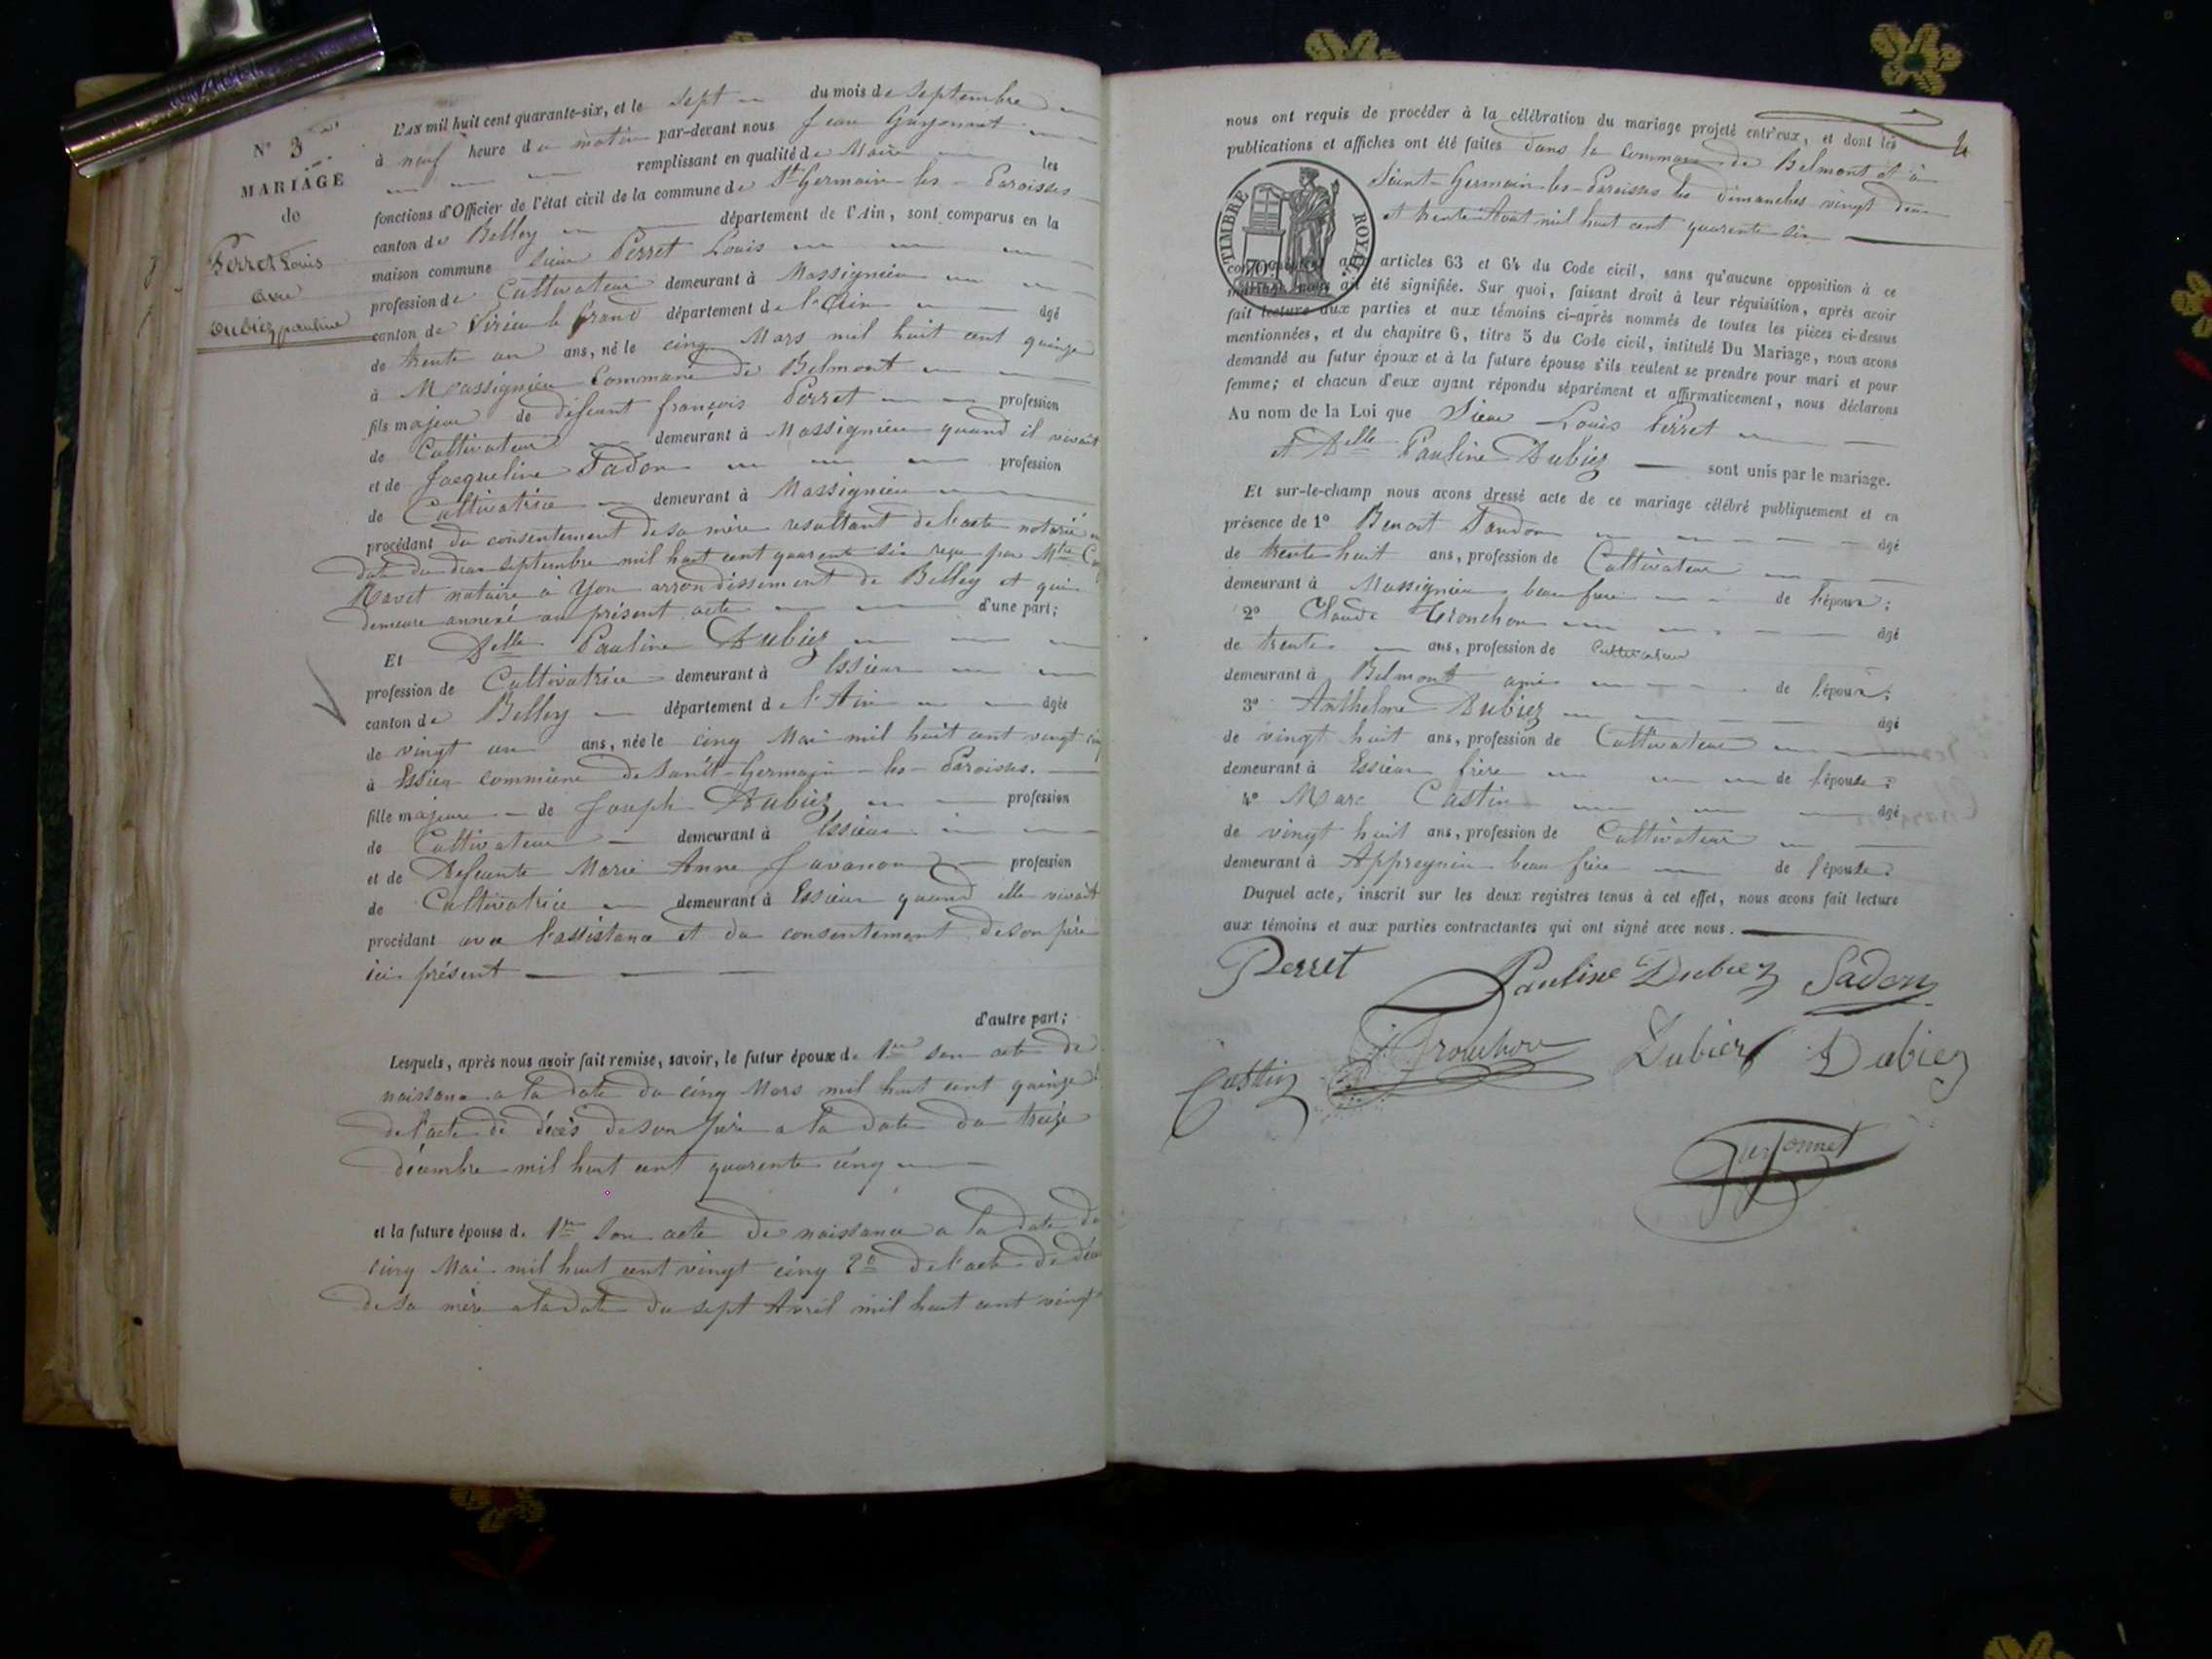 N° 3
MARIAGE
de
Perret Louis
avec
Dubiez pauline
L'AN mil huit cent quarante-six, et le sept du mois de septembre
à neuf heure du matin par-devant nous Jean Guyonnet
remplissant en qualité de Maire les
fonctions d'Officier de l'état civil de la commune de St Germain-les-Paroisses
canton de Belley département de l'Ain, sont comparus en la
maison commune Sieur Perret Louis
profession de Cultivateur demeurant à Massignieu
canton de Virieu le Grand département de l'Ain âgé
de trente un ans, né le cinq Mars mil huit cent quinze
à Massignieu Commune de Belmont
fils majeur de defeunt françois Perret profession
de Cultivateur demeurant à Massignieu quand il vivait
et de Jacqueline Tadon profession
de Cultivatrice demeurant à Massignieu
procédant du consentement de sa mère resultant de l'acte notarié en
date du deux septembre mil huit cent quarente six reçu par Mtre
notaire à Yon arrondissement de Belley et qui
demeure annexé au présent acte d'une part;
Et Delle Pauline Dubiez
profession de Cultivatrice demeurant à Essieux
canton de Belley département de l'Ain âgée
de vingt un ans, née le cinq Mai mil huit cent vingt cinq
à Essieu commune de Saint-Germain-les-Paroisses.
fille majeure de Joseph Dubiez profession
de Cultivateur demeurant à Essieux
et de Defeunte Marie Anne profession
de Cultivatrice demeurant à Essieux quand elle vivait
procédant avec l'assistance et du consentement de son père
ici présent
d'autre part;
Lesquels, après nous avoir fait remise, savoir, le futur époux de 1re son acte de
naissance a la date du cinq Mars mil huit cent quinze
de l'acte de décès de son père a la date du treize
décembre mil huit cent quarente cinq
et la future épouse d. 1re Son acte de naissance a la date du
cinq Mai mil huit cent vingt cinq 2° de l'acte de décès
de sa mère a la date du sept Avril mil huit cent vingt
nous ont requis de procéder à la célébration du mariage projeté entr'eux, et dont les
publications et affiches ont été faites dans la commune de Belmont et à
Saint-Germain-les-Paroisses les dimanches vingt deux
et trente Aout mil huit cent quarente six
TIMBRE ROYAL
70
conformément aux articles 63 et 64 du Code civil, sans qu'aucune opposition à ce
mariage nous ait été signifiée. Sur quoi, faisant droit à leur réquisition, après avoir
fait lecture aux parties et aux témoins ci-après nommés de toutes les pièces ci-dessus
mentionnées, et du chapitre 6, titre 5 du Code civil, intitulé Du Mariage, nous avons
demandé au futur époux et à la future épouse s'ils veulent se prendre pour mari et pour
femme; et chacun d'eux ayant répondu séparément et affirmativement, nous déclarons
Au nom de la Loi que Sieur Louis Perret
et Delle Pauline Dubiez sont unis par le mariage.
Et sur-le-champ nous avons dressé acte de ce mariage célébré publiquement et en
présence de 1° Benoit Tandon âgé
de trente huit ans, profession de Cultivateur
demeurant à Massignieu beau frère de l'époux;
2° Claude Tronchon âgé
de trente ans, profession de Cultivateur
demeurant à Belmont ami de l'époux;
3° Anthelme Dubiez âgé
de vingt huit ans, profession de Cultivateur
demeurant à Essieux frère de l'épouse;
4° Marc Castin âgé
de vingt huit ans, profession de Cultivateur
demeurant à Appregnin beau frère de l'épouse.
Duquel acte, inscrit sur les deux registres tenus à cet effet, nous avons fait lecture
aux témoins et aux parties contractantes qui ont signé avec nous.
Perret Pauline Dubiez Tadon
Castin Tronchon Dubiez Dubiez
Guyonnet